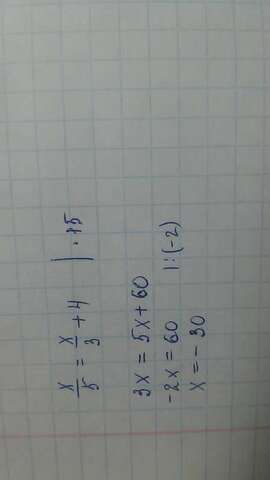 x/5 = x/3 + 4 | · 15
3x = 5x + 60
-2x = 60 | : (-2)
x = - 30